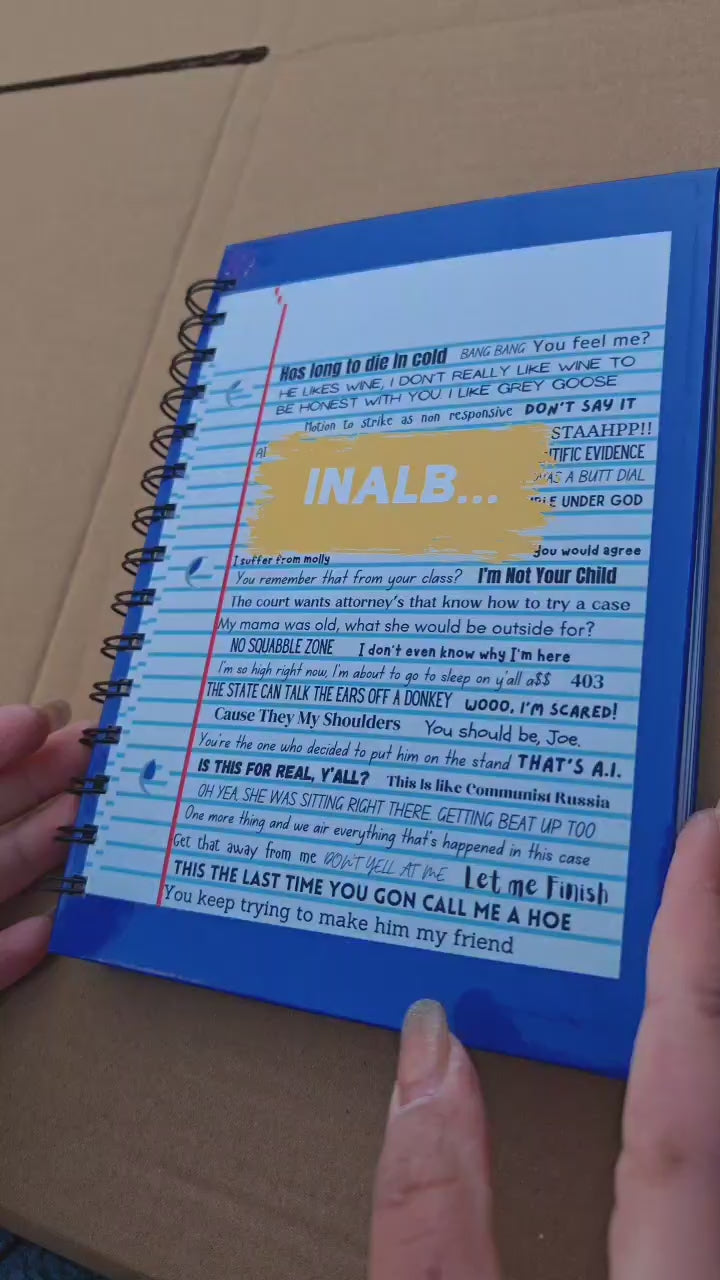 Hos long to die in cold BANG BANG You feel me?
HE LIKES WINE, I DON'T REALLY LIKE WINE TO
BE HONEST WITH YOU I LIKE GREY GOOSE
Motion to strike as non responsive DON'T SAY IT
STAAHPP!!
EVIDENCE
INALB...
A BUTT DIAL
UNDER GOD
you would agree
I suffer from molly
You remember that from your class? I'm Not Your Child
The court wants attorney's that know how to try a case
My mama was old, what she would be outside for?
NO SQUABBLE ZONE I don't even know why I'm here
I'm so high right now, I'm about to go to sleep on y'all a$$ 403
THE STATE CAN TALK THE EARS OFF A DONKEY WOOO, I'M SCARED!
Cause They My Shoulders You should be, Joe.
You're the one who decided to put him on the stand THAT'S A.I.
IS THIS FOR REAL, Y'ALL? This Is like Communist Russia
OH YEA, SHE WAS SITTING RIGHT THERE. GETTING BEAT UP TOO
One more thing and we air everything that's happened in this case
Get that away from me DON'T YELL AT ME Let me Finish
THIS THE LAST TIME YOU GON CALL ME A HOE
You keep trying to make him my friend